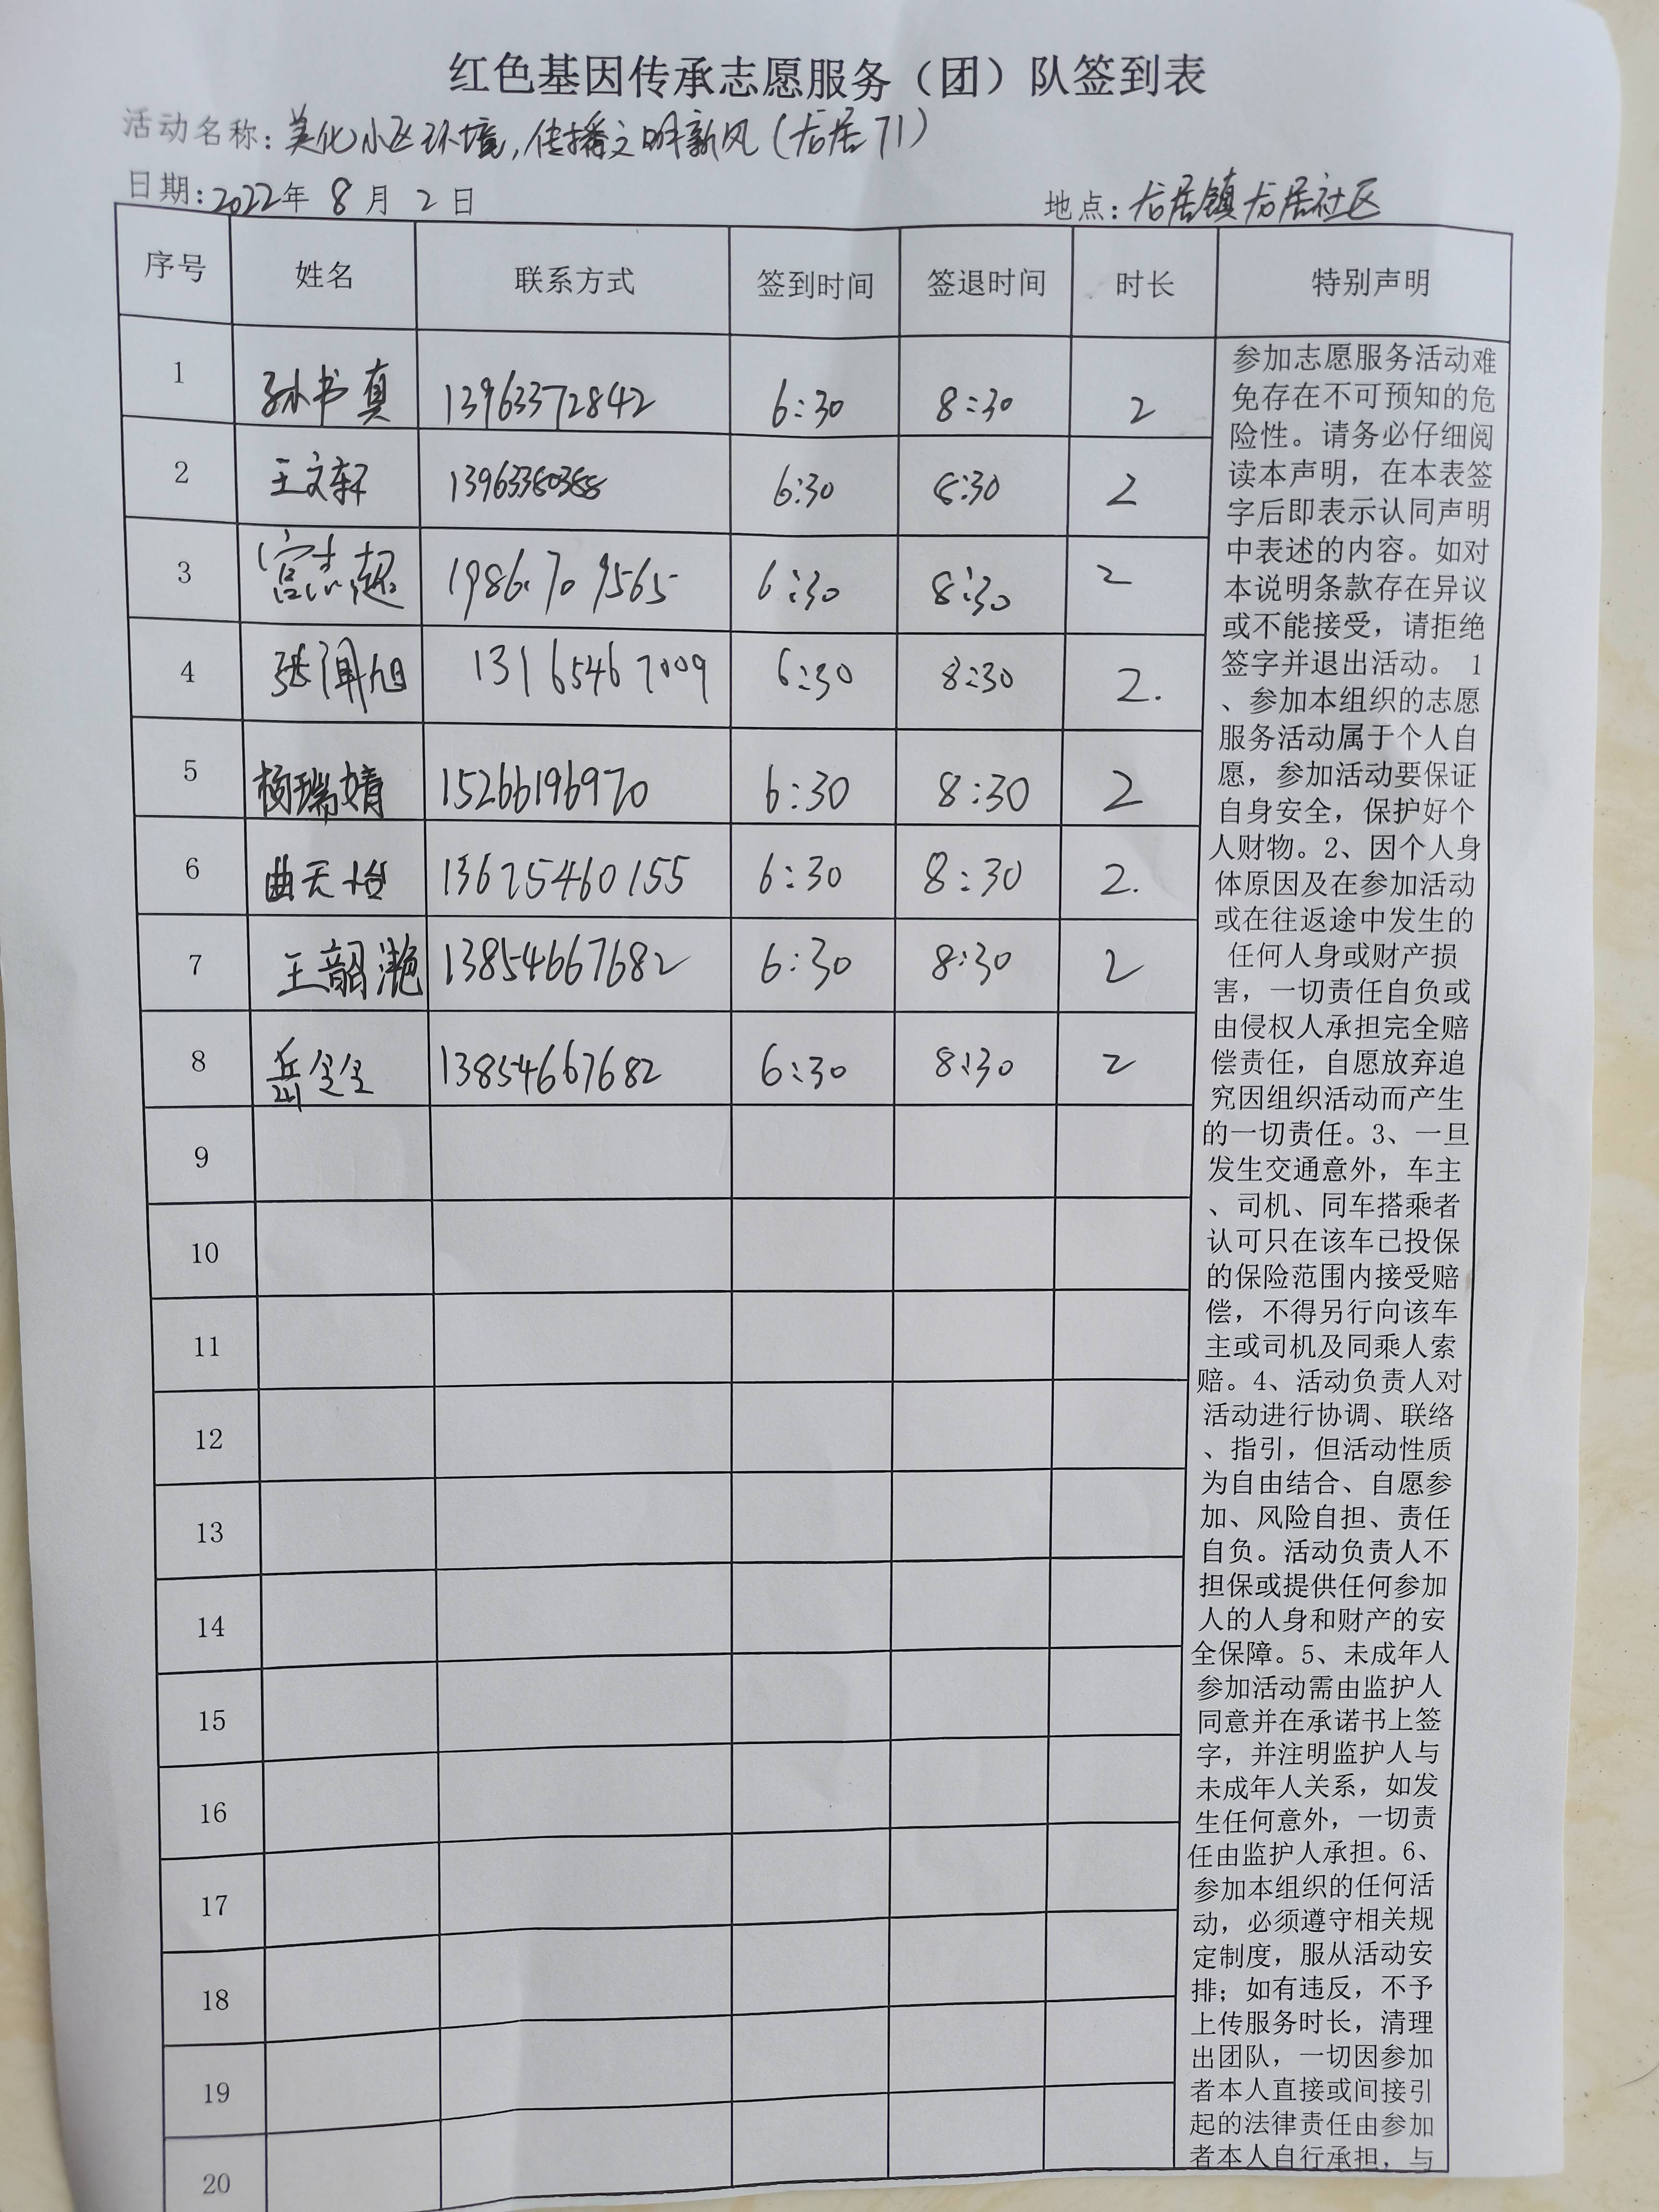 红色基因传承志愿服务（团）队签到表
活动名称：美化小区环境，传播文明新风（龙居71）
日期：2022年 8月 2日 地点：龙居镇龙居社区
序号 姓名 联系方式 签到时间 签退时间 时长 特别声明
1 孙书真 13963372842 6:30 8:30 2
2 王文轩 6:30 8:30 2
3 宫志超 6:30 8:30 2
4 张闻旭 13165467009 6:30 8:30 2.
5 杨瑞婧 15266196970 6:30 8:30 2
6 曲天怡 13625460155 6:30 8:30 2.
7 王韶滟 13854667682 6:30 8:30 2
8 岳全全 13854667682 6:30 8:30 2
9
10
11
12
13
14
15
16
17
18
19
20
参加志愿服务活动难
免存在不可预知的危
险性。请务必仔细阅
读本声明，在本表签
字后即表示认同声明
中表述的内容。如对
本说明条款存在异议
或不能接受，请拒绝
签字并退出活动。 1
、参加本组织的志愿
服务活动属于个人自
愿，参加活动要保证
自身安全，保护好个
人财物。2、因个人身
体原因及在参加活动
或在往返途中发生的
任何人身或财产损
害，一切责任自负或
由侵权人承担完全赔
偿责任，自愿放弃追
究因组织活动而产生
的一切责任。3、一旦
发生交通意外，车主
、司机、同车搭乘者
认可只在该车已投保
的保险范围内接受赔
偿，不得另行向该车
主或司机及同乘人索
赔。4、活动负责人对
活动进行协调、联络
、指引，但活动性质
为自由结合、自愿参
加、风险自担、责任
自负。活动负责人不
担保或提供任何参加
人的人身和财产的安
全保障。5、未成年人
参加活动需由监护人
同意并在承诺书上签
字，并注明监护人与
未成年人关系，如发
生任何意外，一切责
任由监护人承担。6、
参加本组织的任何活
动，必须遵守相关规
定制度，服从活动安
排；如有违反，不予
上传服务时长，清理
出团队，一切因参加
者本人直接或间接引
起的法律责任由参加
者本人自行承担，与